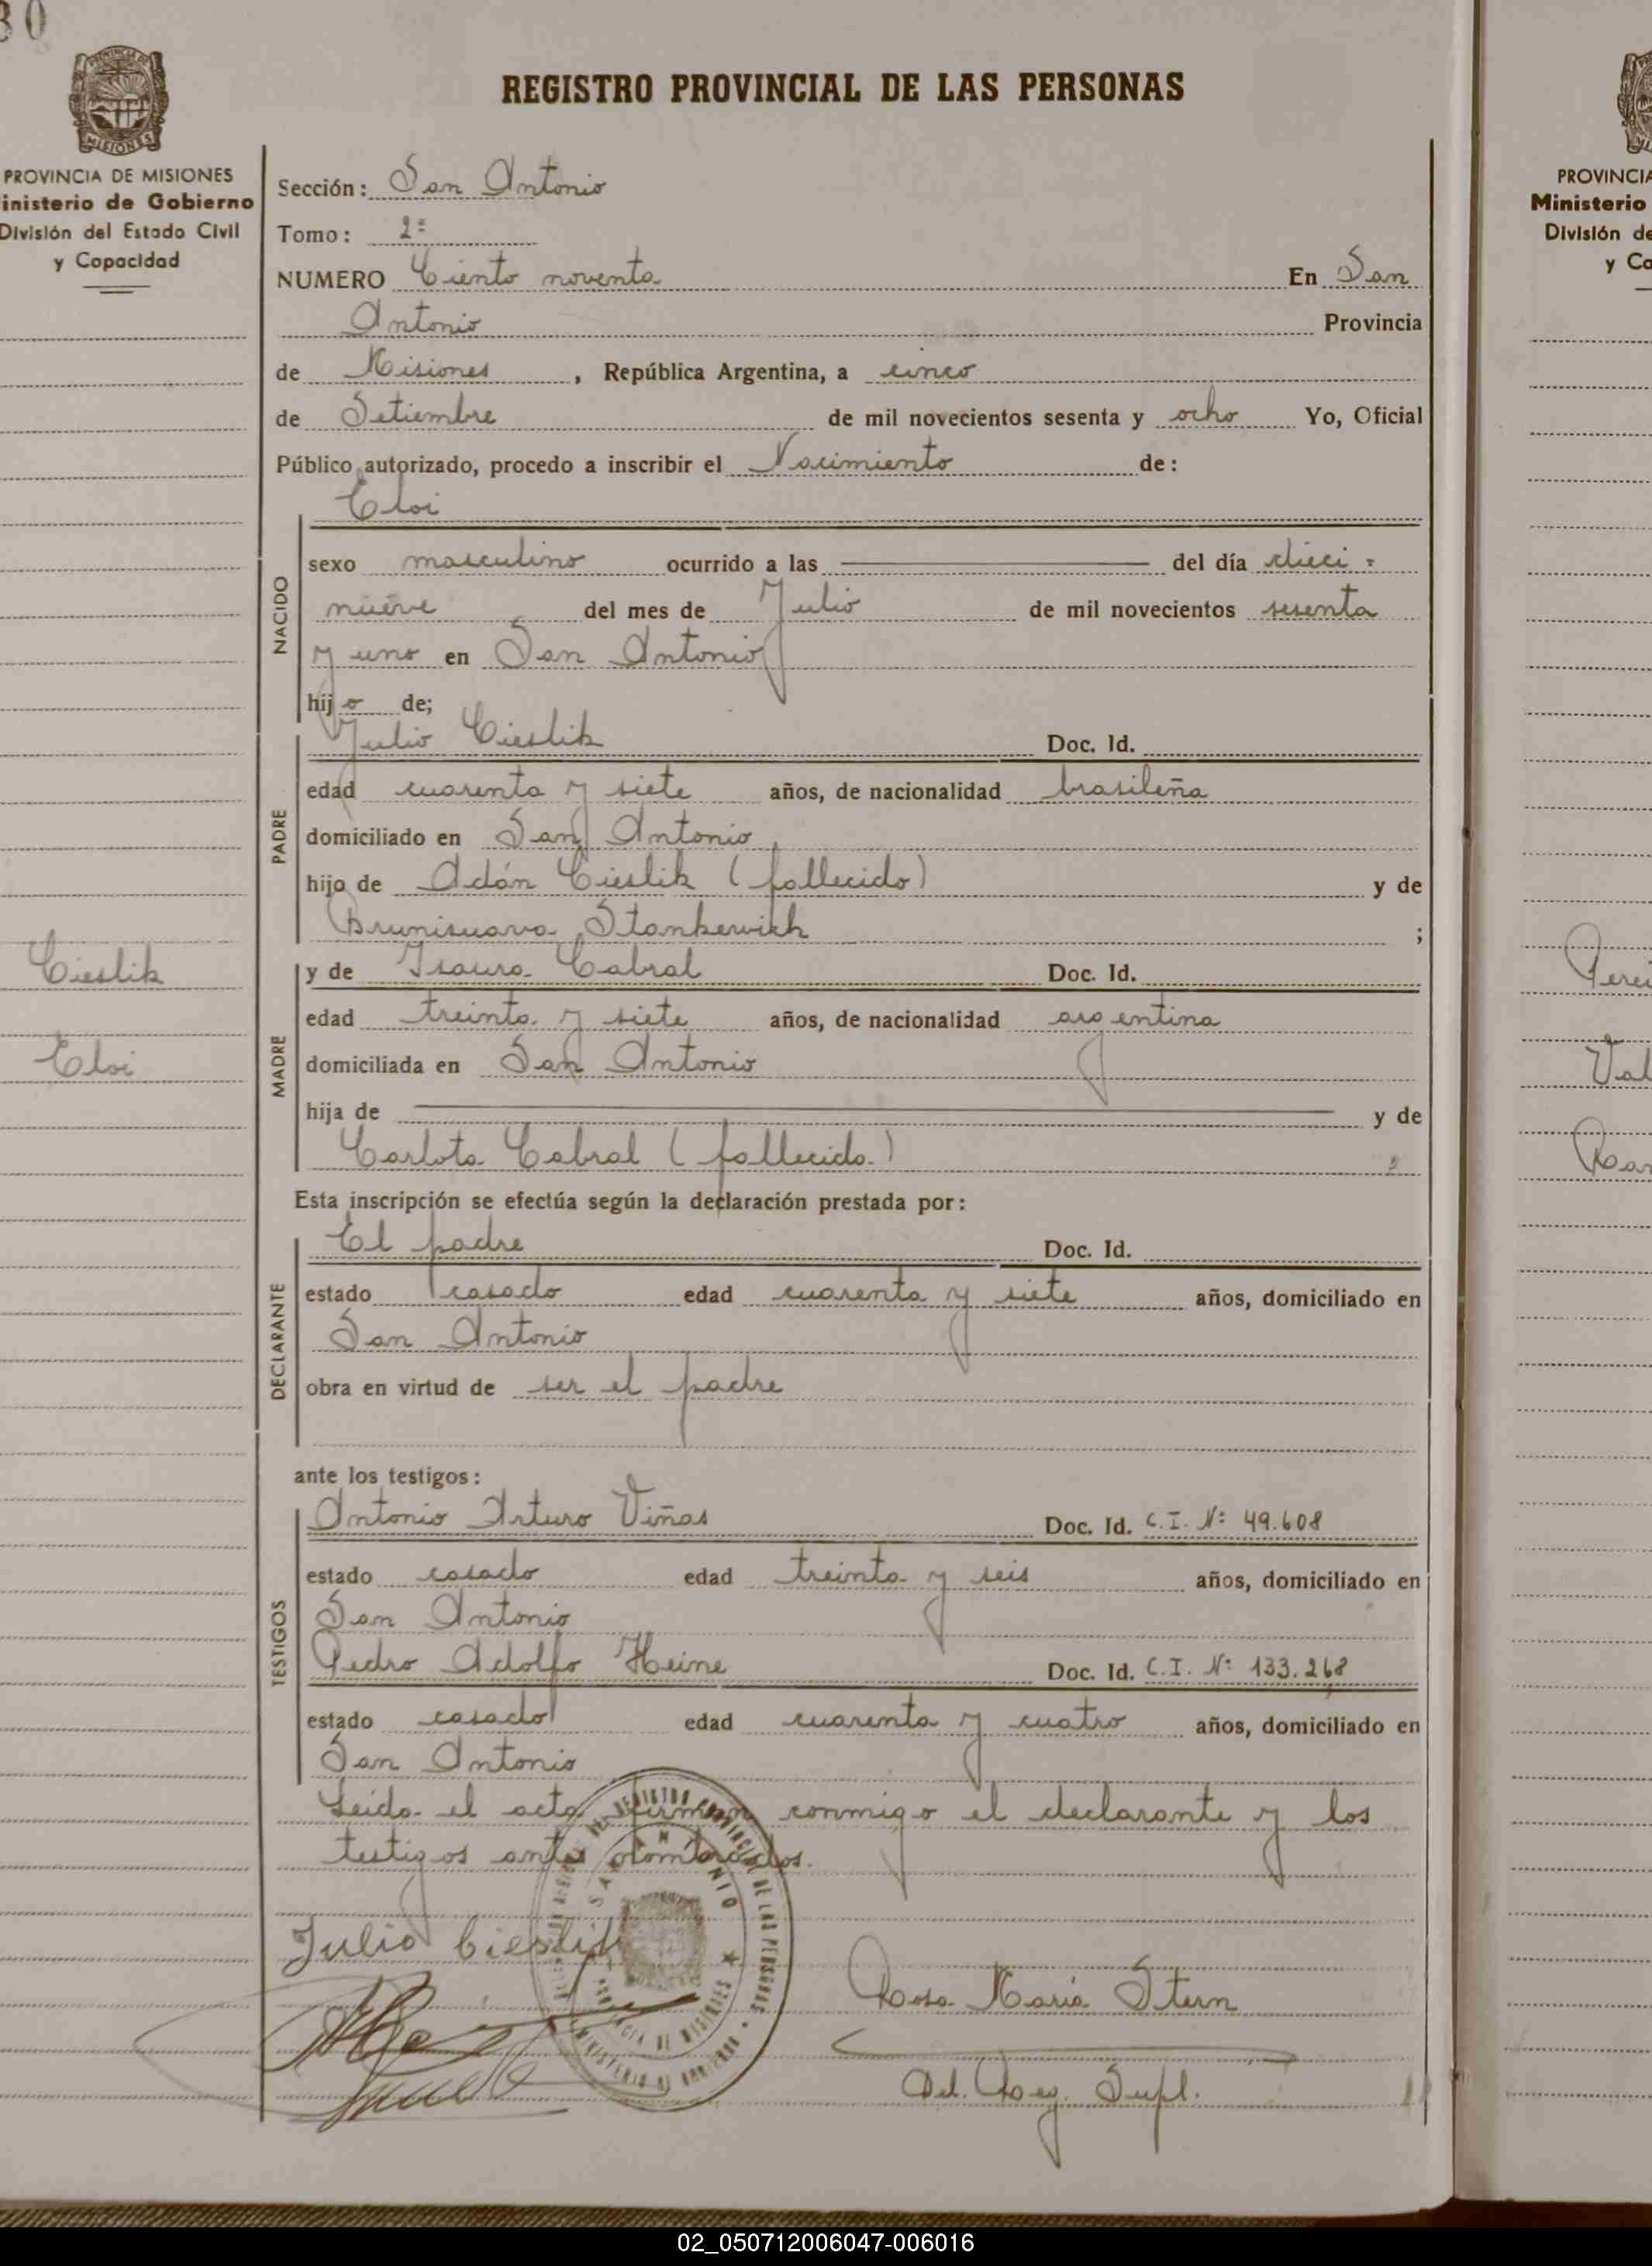 30
REGISTRO PROVINCIAL DE LAS PERSONAS
PROVINCIA DE MISIONES
MISIONES
PROVINCIA DE MISIONES
inisterio de Gobierno
División del Estado Civil
y Capacidad
Cieslik
Eloi
Sección: San Antonio
Tomo: 2º
NUMERO Ciento noventa En San
Antonio Provincia
de Misiones, República Argentina, a cinco
de Setiembre de mil novecientos sesenta y ocho Yo, Oficial
Público autorizado, procedo a inscribir el Nacimiento de:
Eloi
NACIDO
sexo masculino ocurrido a las del día dieci=
nueve del mes de Julio de mil novecientos sesenta
y uno en San Antonio
hijo de;
PADRE
Julio Cieslik Doc. Id.
edad cuarenta y siete años, de nacionalidad brasileña
domiciliado en San Antonio
hijo de Adán Cieslik (fallecido) y de
Brunisuava Stankewich ;
MADRE
y de Isaura Cabral Doc. Id.
edad treinta y siete años, de nacionalidad argentina
domiciliada en San Antonio
hija de y de
Carlota Cabral (fallecida)
Esta inscripción se efectúa según la declaración prestada por:
DECLARANTE
El padre Doc. Id.
estado casado edad cuarenta y siete años, domiciliado en
San Antonio
obra en virtud de ser el padre
ante los testigos:
TESTIGOS
Antonio Arturo Viñas Doc. Id. C.I. Nº 49.608
estado casado edad treinta y seis años, domiciliado en
San Antonio
Pedro Adolfo Heine Doc. Id. C.I. Nº 133.268
estado casado edad cuarenta y cuatro años, domiciliado en
San Antonio
Leída el acta firman conmigo el declarante y los
testigos antes nombrados.
REGISTRO PROVINCIAL DE LAS PERSONAS
SAN ANTONIO
PROVINCIA DE MISIONES
MINISTERIO DE GOBIERNO
Julio Cieslik
Rosa María Stern
Del. Reg. Supl.
PROVINCIA
Ministerio
División de
y Ca
Perei
Val
Ram
02_050712006047-006016